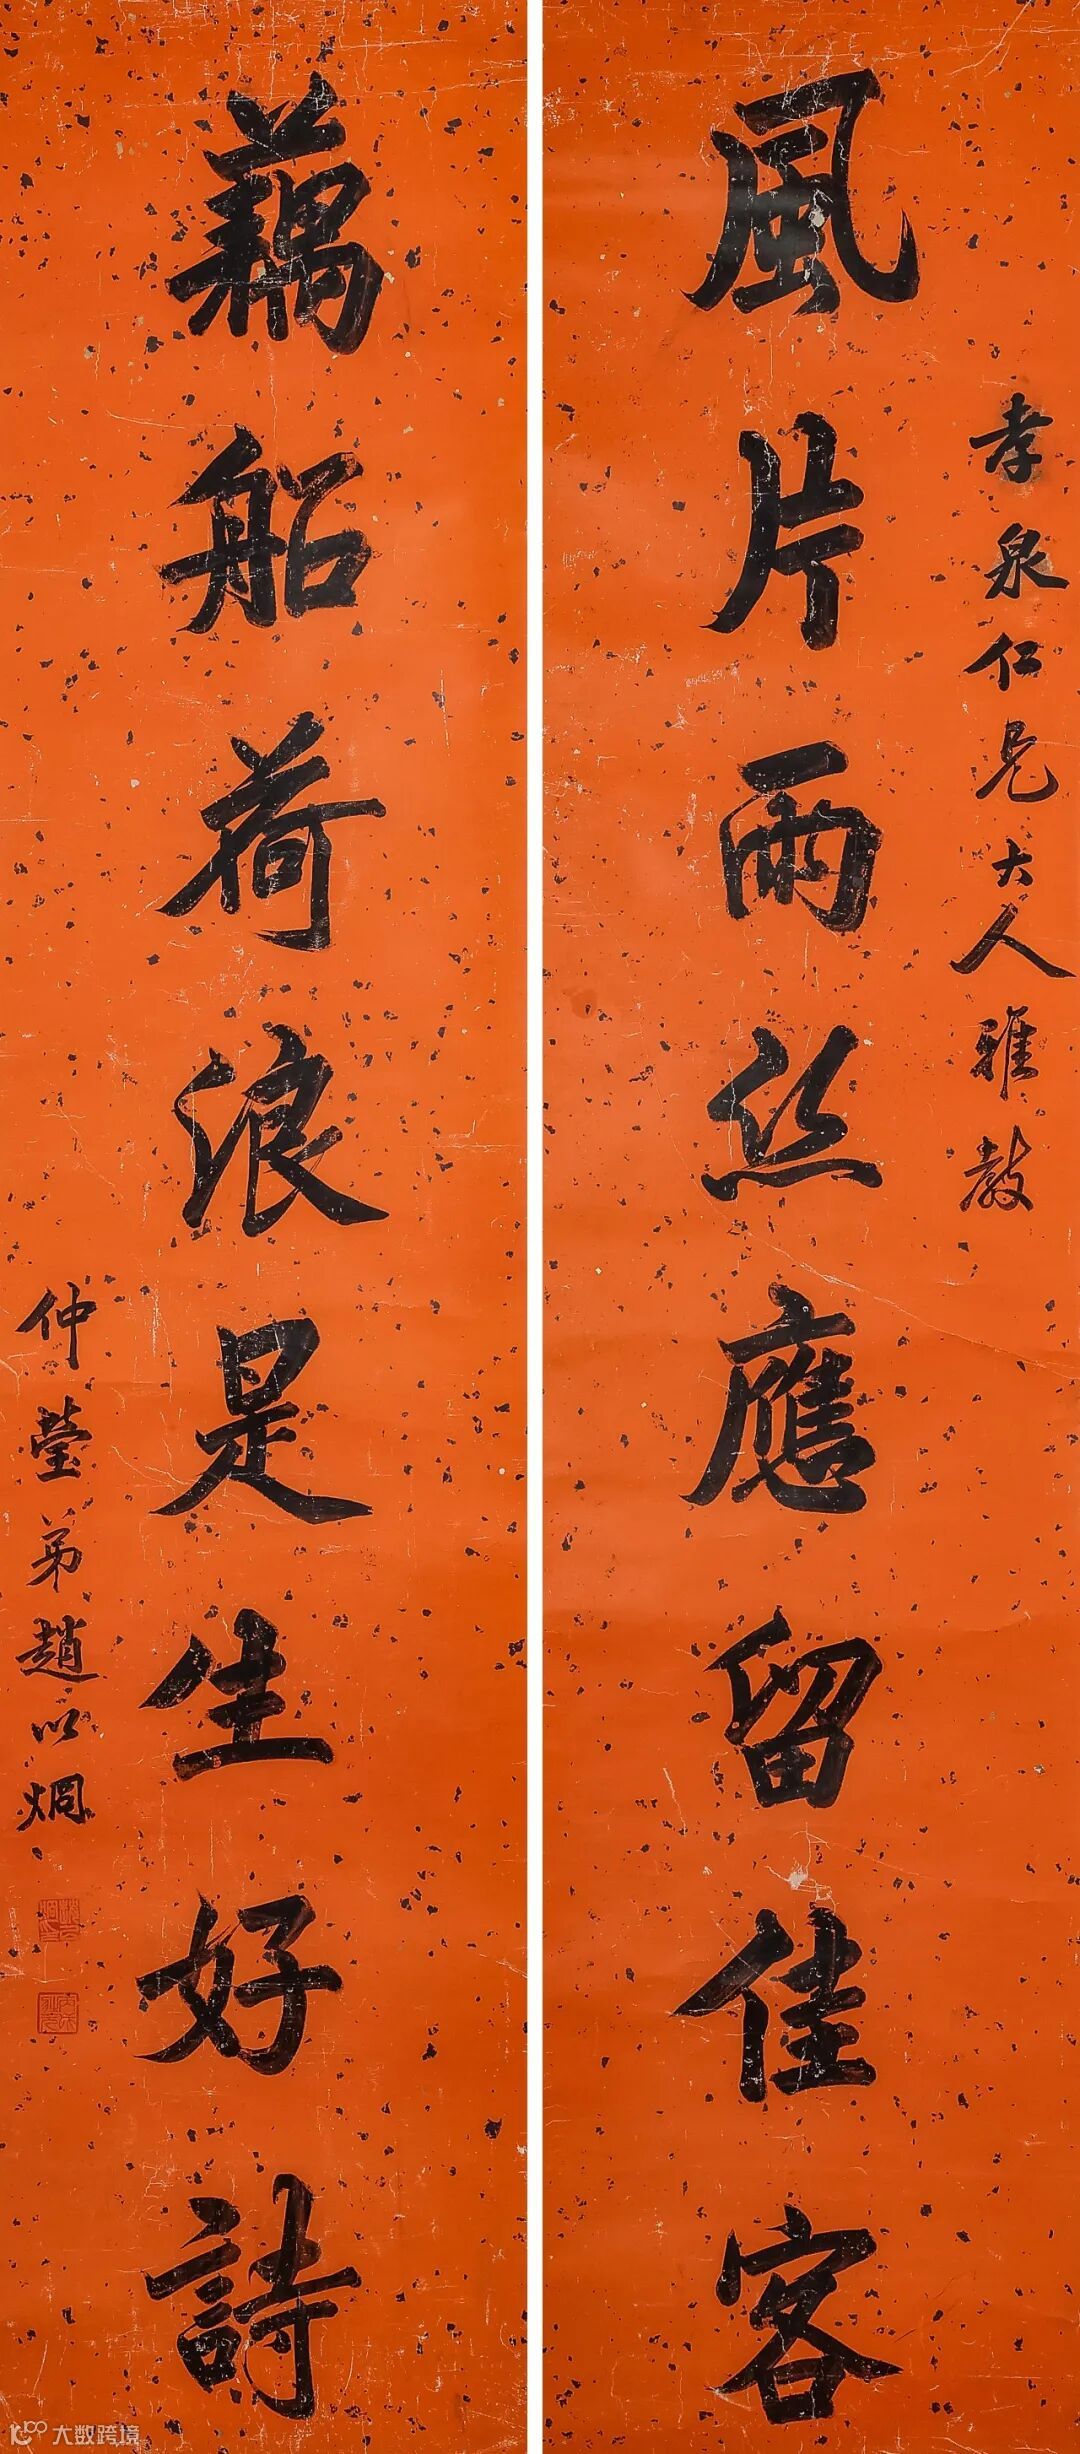 孝泉仁兄大人雅教
風片雨丝應留佳客
藕船荷浪是生好詩
仲瑩弟趙以烱
大数跨境